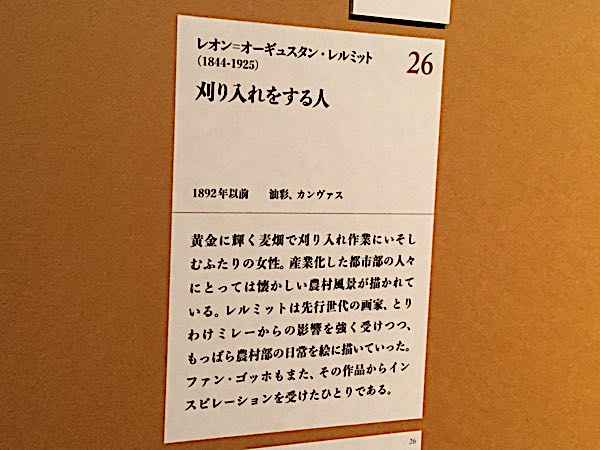 レオン=オーギュスタン・レルミット
(1844-1925)
26
刈り入れをする人
1892年以前　油彩、カンヴァス
黄金に輝く麦畑で刈り入れ作業にいそし
むふたりの女性。産業化した都市部の人々
にとっては懐かしい農村風景が描かれて
いる。レルミットは先行世代の画家、とり
わけミレーからの影響を強く受けつつ、
もっぱら農村部の日常を絵に描いていった。
ファン・ゴッホもまた、その作品からイン
スピレーションを受けたひとりである。
26